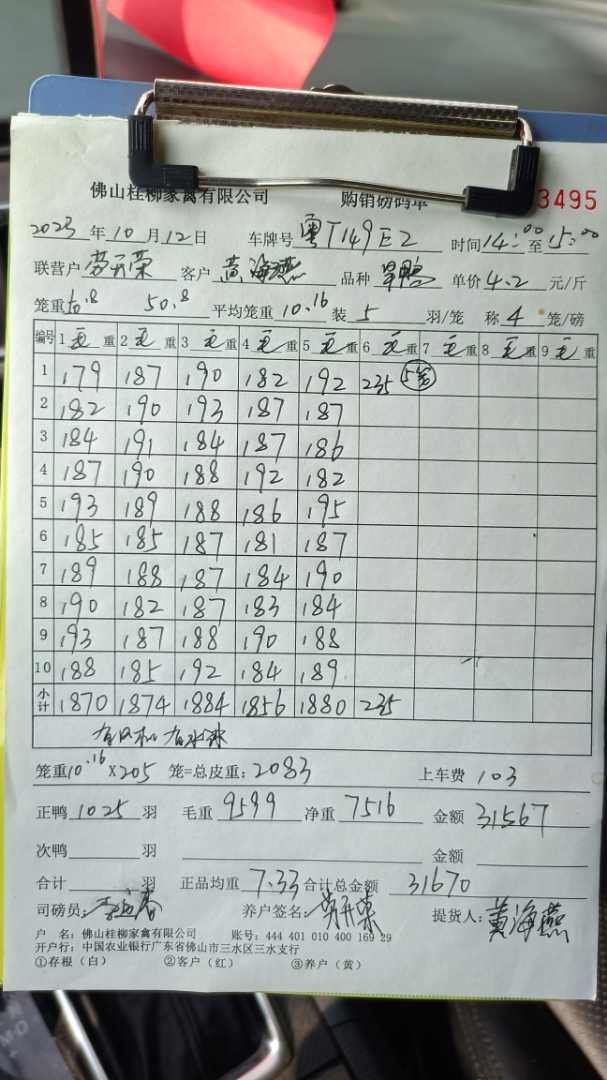 佛山桂柳家禽有限公司 购销磅码单 3495
2023年10月12日 车牌号 粤T149E2 时间14:00至15:00
联营户 劳开荣 客户 黄海燕 品种 旱鸭 单价4.2元/斤
笼重 50.8 平均笼重 10.16 装 5 羽/笼 称 4 笼/磅
编号 1毛重 2毛重 3毛重 4毛重 5毛重 6毛重 7毛重 8毛重 9毛重
1 179 187 190 182 192 235 5笼
2 182 190 193 187 187
3 184 191 184 187 186
4 187 190 188 192 182
5 193 189 188 186 195
6 185 185 187 181 187
7 189 188 187 184 190
8 190 182 187 183 184
9 193 187 188 190 188
10 188 185 192 184 189
小计 1870 1874 1884 1856 1880 235
笼重10.16×205笼=总皮重:2083 上车费 103
正鸭 1025 羽 毛重 9599 净重 7516 金额 31567
次鸭 羽 金额
合计 羽 正品均重 7.33 合计总金额 31670
司磅员: 养户签名: 劳开荣 提货人: 黄海燕
户 名: 佛山桂柳家禽有限公司 账号: 444 401 010 400 169 29
开户行: 中国农业银行广东省佛山市三水区三水支行
①存根(白) ②客户(红) ③养户(黄)